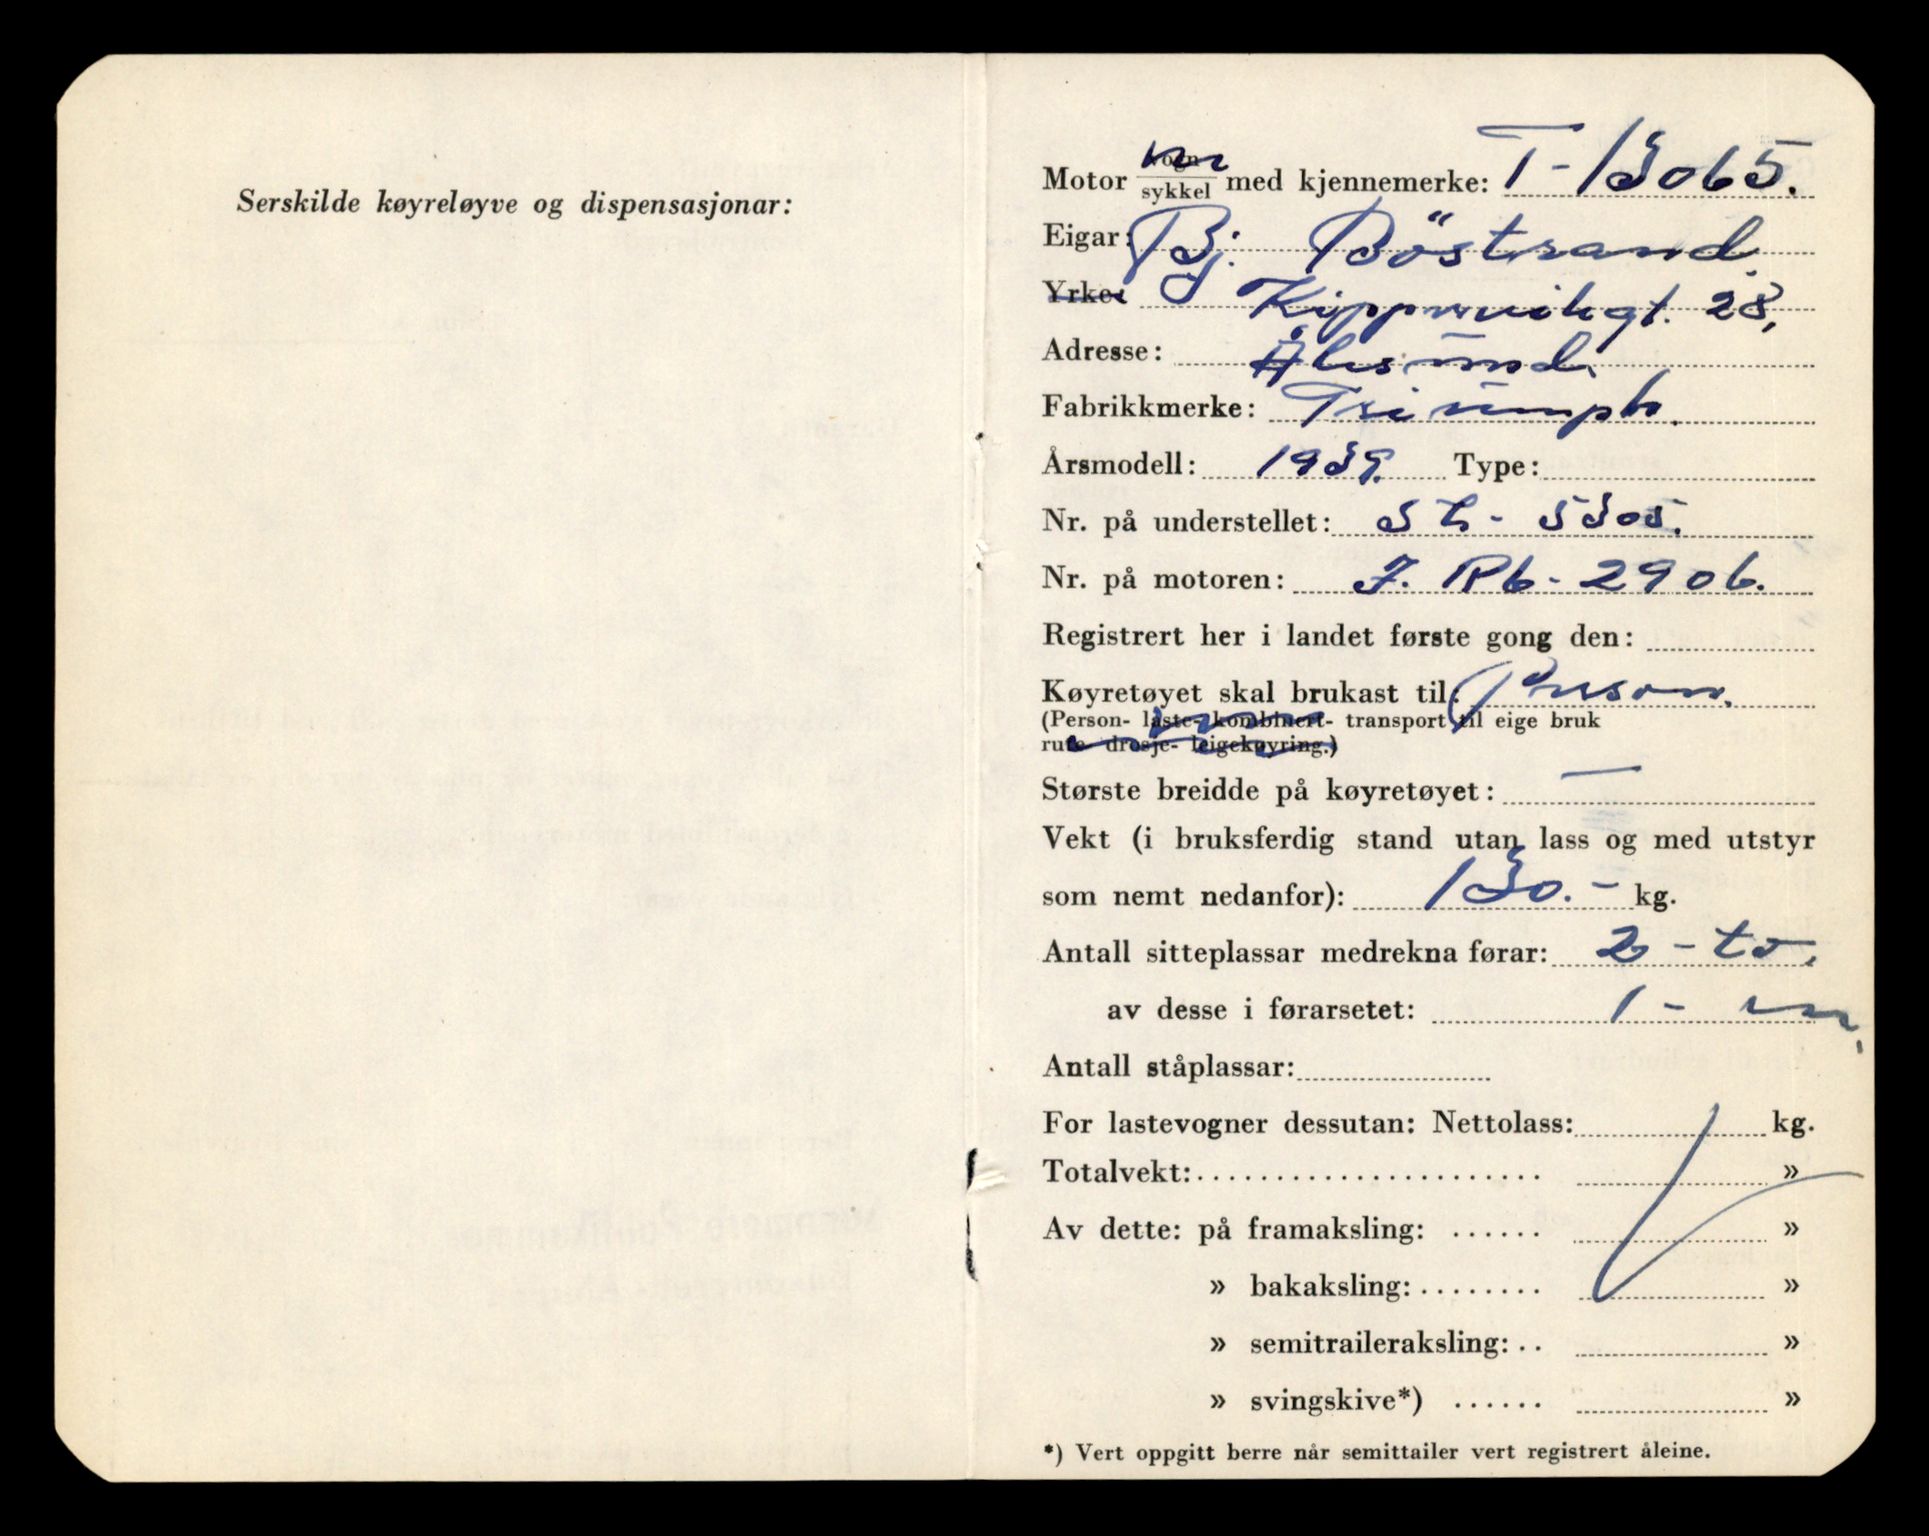 Serskilde køyreløyve og dispensasjonar:
Motor vogn/sykkel med kjennemerke: T-13065.
Eigar: Bj. Böstrand.
Yrke: Kipperviksgt. 28,
Adresse: Ålesund.
Fabrikkmerke: Triumph.
Årsmodell: 1939. Type:
Nr. på understellet: SL - 5305.
Nr. på motoren: J. Rb - 2906.
Registrert her i landet første gong den:
Køyretøyet skal brukast til: Person.
(Person- laste- kombinert- transport til eige bruk
rute- drosje- leigekøyring.)
Største breidde på køyretøyet: —
Vekt (i bruksferdig stand utan lass og med utstyr
som nemt nedanfor): 130.- kg.
Antall sitteplassar medrekna førar: 2 - to.
av desse i førarsetet: 1 -
Antall ståplassar:
For lastevogner dessutan: Nettolass: kg.
Totalvekt: ...................... »
Av dette: på framaksling: ...... »
» bakaksling: ........ »
» semitraileraksling: .. »
» svingskive*) ...... »
*) Vert oppgitt berre når semittailer vert registrert åleine.